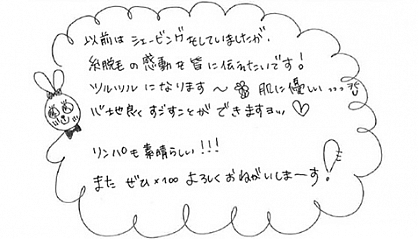 以前は シェービングをしていましたが、
糸脱毛の感動を皆に伝えたいです!
ツルツルになります〜 肌に優しい…
心地良く すごすことが できますヨッ♡
リンパも素晴らしい!!!
また ぜひ×100 よろしくおねがいしまーす!